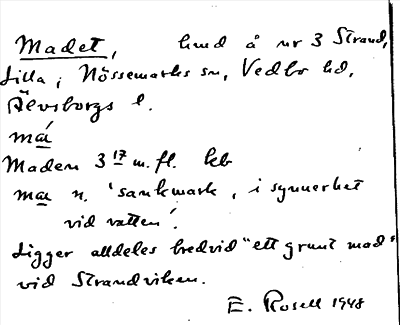 Madet, hmd å nr 3 Strand,
Lilla, Nössemarks sn, Vedbo hd,
Älvsborgs l.
má
Maden 3 17 m.fl. kb
ma n. 'sankmark, i synnerhet
vid vatten'.
Ligger alldeles bredvid "ett grunt mad"
vid Strandviken.
E. Rosell 1948